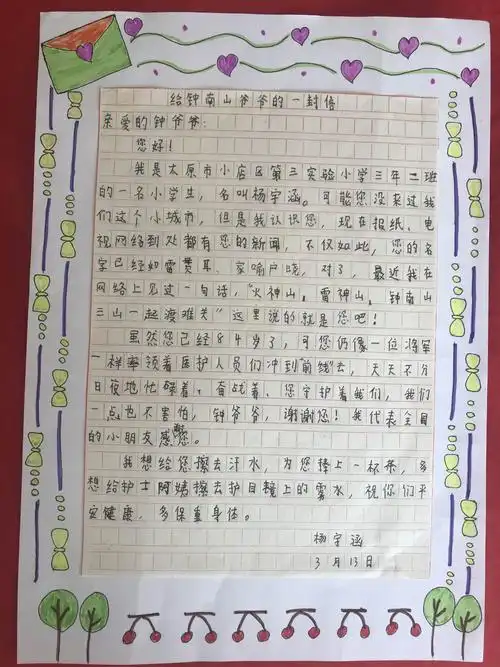 给钟南山爷爷的一封信
亲爱的钟爷爷：
您好！
我是太原市小店区第三实验小学三年二班
的一名小学生，名叫杨宇涵。可能您没来过我
们这个小城市，但是我认识您，现在报纸、电
视网络到处都有您的新闻，不仅如此，您的名
字已经如雷贯耳、家喻户晓，对了，最近我在
网络上见过一句话，“火神山，雷神山，钟南山
三山一起渡难关”这里说的就是您吧！
虽然您已经84岁了，可您仍像一位将军
一样率领着医护人员们冲到“前线”去，天天不分
日夜地忙碌着、奋战着、您守护着我们，我们
一点也不害怕，钟爷爷，谢谢您！我代表全国
的小朋友感谢您。
我想给您擦去汗水，为您捧上一杯茶，多
想给护士阿姨擦去护目镜上的雾水，祝你们平
安健康，多保重身体。
杨宇涵
3月13日